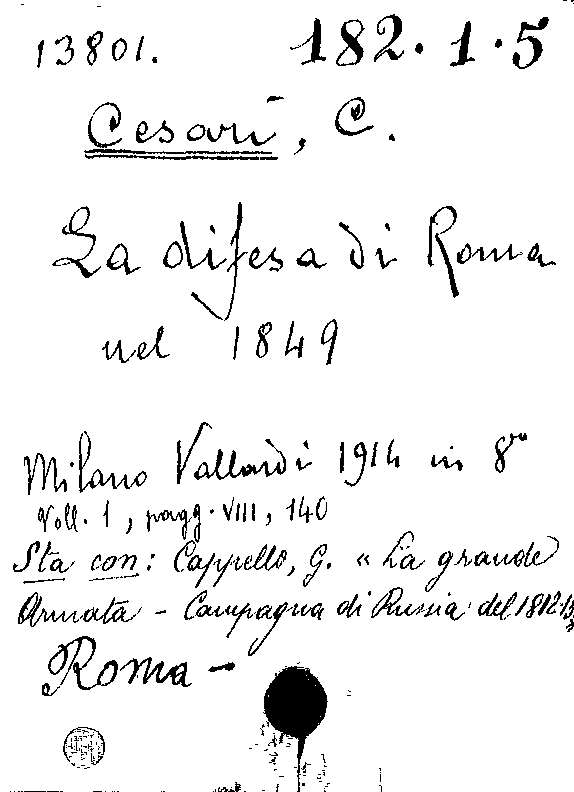 13801. 182.1.5
Cesari, C.
La difesa di Roma
nel 1849
Milano Vallardi 1914 in 8vo
Voll. 1, pagg. VIII, 140
Sta con: Cappello, G. « La grande
Armata - Campagna di Russia del 1812-13 »
Roma -